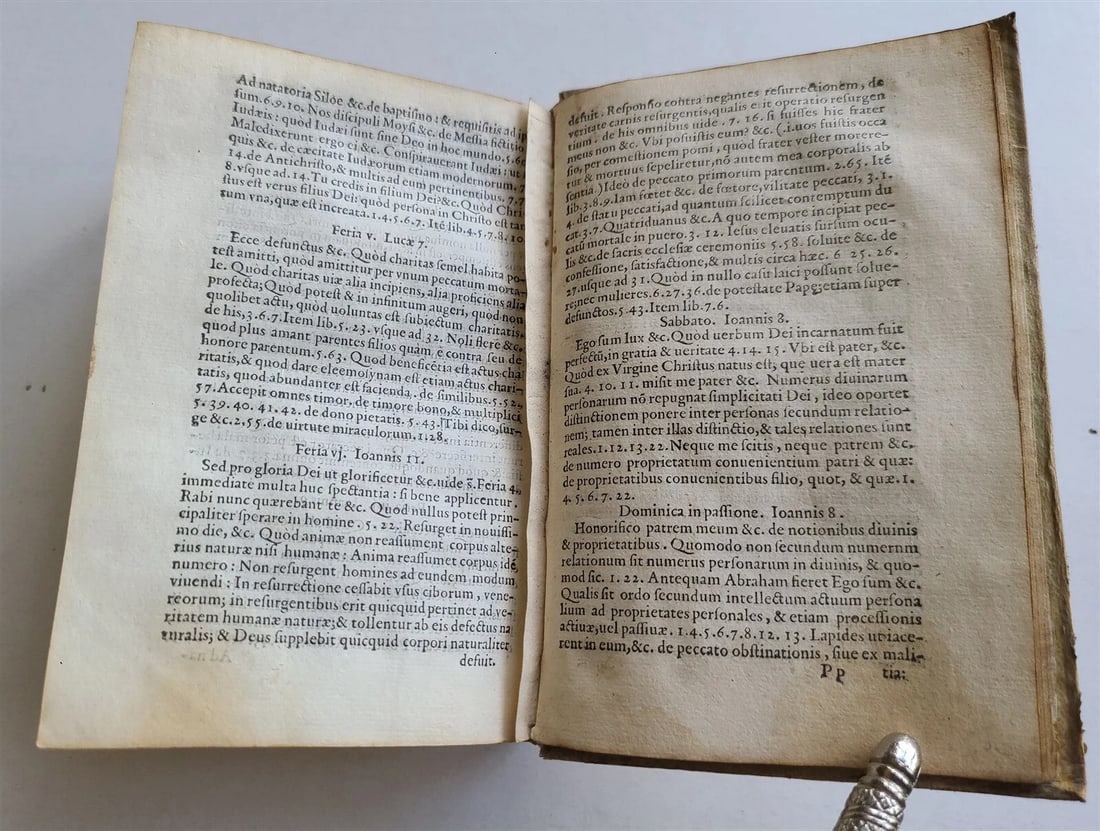 Ad natatoria Siloe &c. de baptismo: & requisitis ad ip
sum. 6. 9. 10. Nos discipuli Moysi &c. de Messia fictitio
Iudæis: quòd Iudæi sunt sine Deo in hoc mundo. 5. 60
Maledixerunt ergo ei &c. Conspirauerant Iudæi: ut
quis &c. de cæcitate Iudæorum etiam modernorum. 7.
14. de Antichristo, & multis ad eum pertinentibus. 7.7
8. vsque ad. 14. Tu credis in filium Dei? &c. Quòd Chri-
stus est verus filius Dei: quòd persona in Christo est tan
tum vna, quæ est increata. 1. 4. 5. 6. 7. Ité lib. 4. 5. 7. 8. 10.
Feria v. Lucæ 7.
Ecce defunctus &c. Quòd charitas semel habita po-
test amitti, quòd amittitur per vnum peccatum morta-
le. Quòd charitas uiæ alia incipiens, alia proficiens, alia
profecta; Quòd potest & in infinitum augeri, quòd non
quolibet actu, quòd uoluntas est subiectum charitatis.
de his, 3. 6. 7. Item lib. 5. 23. vsque ad 32. Noli flere &c.
quod plus amant parentes filios quàm è contra seu de
honore parentum. 5. 63. Quod beneficētia est actus cha
ritatis, & quod dare eleemosynam est etiam actus chari-
tatis, quod abundanter est facienda. de similibus. 5. 52.
57. Accepit omnes timor, de timore bono, & multiplici
5. 39. 40. 41. 42. de dono pietatis. 5. 43. Tibi dico, sur-
ge &c. 2. 55. de uirtute miraculorum. 1. 28.
Feria vj. Ioannis 11.
Sed pro gloria Dei ut glorificetur &c. uide s. Feria 4.
immediate multa huc spectantia: si bene applicentur.
Rabi nunc quærebant te &c. Quod nullus potest prin-
cipaliter sperare in homine. 5. 22. Resurget in nouissi-
mo die, &c. Quòd animæ non reassument corpus alte-
rius naturæ nisi humanæ: Anima reassumet corpus idé
numero: Non resurgent homines ad eundem modum
viuendi: In resurrectione cessabit vsus ciborum, vene-
reorum; in resurgentibus erit quicquid pertinet ad ve-
ritatem humanæ naturæ; & tollentur ab eis defectus na
turalis; & Deus supplebit quicquid corpori naturaliter
defuit.
defuit. Responsio contra negantes resurrectionem, de
veritate carnis resurgentis, qualis erit operatio resurgen
tium. de his omnibus uide. 7. 16. si fuisses hic frater
meus non &c. Vbi posuistis eum? &c. (.i. uos fuistis occa
sio, per comestionem pomi, quod frater vester morere-
tur & mortuus sepeliretur, nō autem mea corporalis ab
sentia.) Ideo de peccato primorum parentum. 2. 65. Ité
lib. 3. 8. 9. Iam fœtet &c. de fœtore, vilitate peccati, 3. 1.
4. de statu peccati, ad quantum scilicet contemptum du
cat. 3. 7. Quatriduanus &c. A quo tempore incipiat pec-
catū mortale in puero. 3. 12. Iesus eleuatis sursum ocu-
lis &c. de sacris ecclesiæ ceremoniis 5. 58. soluite &c. de
confessione, satisfactione, & multis circa hæc. 6 25. 26.
27. usque ad 31. Quòd in nullo casu laici possunt solue-
re; nec mulieres. 6. 27. 36. de potestate Papæ etiam super
defunctos. 5. 43. Item lib. 7. 6.
Sabbato. Ioannis 8.
Ego sum lux &c. Quòd uerbum Dei incarnatum fuit
perfectū, in gratia & ueritate 4. 14. 15. Vbi est pater, &c.
Quòd ex Virgine Christus natus est, que uera est mater
sua. 4. 10. 11. misit me pater &c. Numerus diuinarum
personarum nō repugnat simplicitati Dei, ideo oportet
distinctionem ponere inter personas secundum relatio-
nem; tamen inter illas distinctio, & tales relationes sunt
reales. 1. 12. 13. 22. Neque me scitis, neque patrem &c.
de numero proprietatum conuenientium patri & quæ:
de proprietatibus conuenientibus filio, quot, & quæ. 1.
4. 5. 6. 7. 22.
Dominica in passione. Ioannis 8.
Honorifico patrem meum &c. de notionibus diuinis
& proprietatibus. Quomodo non secundum numernm
relationum sit numerus personarum in diuinis, & quo-
mod sic. 1. 22. Antequam Abraham fieret Ego sum &c.
Qualis sit ordo secundum intellectum actuum persona
lium ad proprietates personales, & etiam processionis
actiuæ, uel passiuæ. 1. 4. 5. 6. 7. 8. 12. 13. Lapides ut iace-
rent in eum, &c. de peccato obstinationis, siue ex mali-
Pp tia: